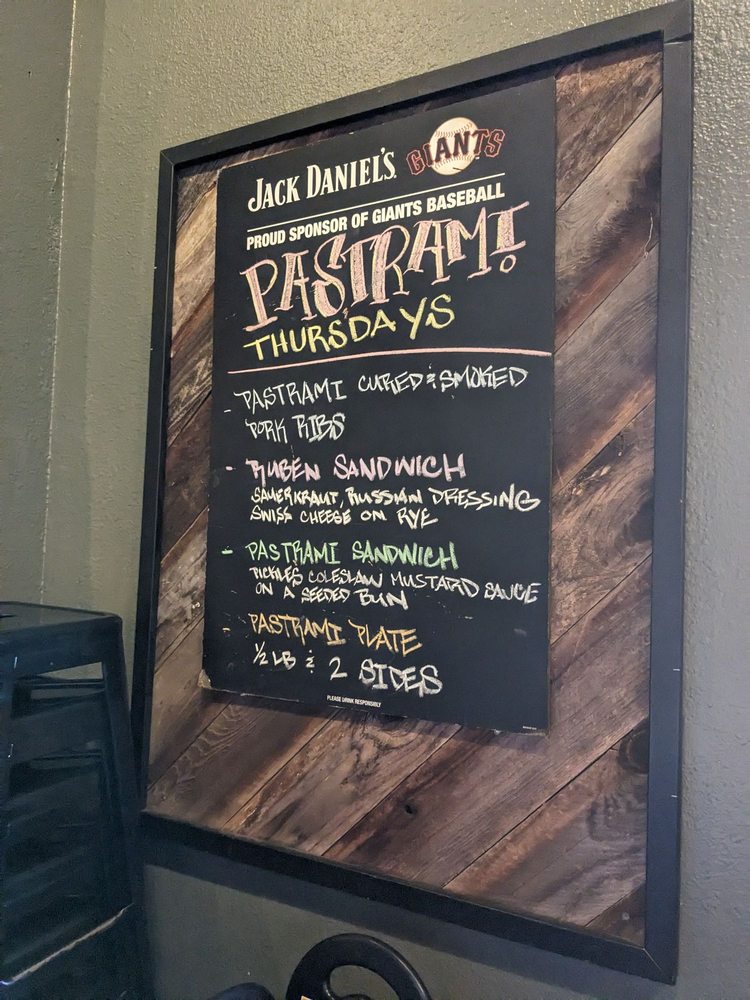 JACK DANIEL'S GIANTS
PROUD SPONSOR OF GIANTS BASEBALL
PASTRAMI
THURSDAYS
- PASTRAMI CURED & SMOKED
PORK RIBS
- RUBEN SANDWICH
SAUERKRAUT, RUSSIAN DRESSING
SWISS CHEESE ON RYE
- PASTRAMI SANDWICH
PICKLES COLESLAW MUSTARD SAUCE
ON A SEEDED BUN
- PASTRAMI PLATE
1/2 LB & 2 SIDES
PLEASE DRINK RESPONSIBLY